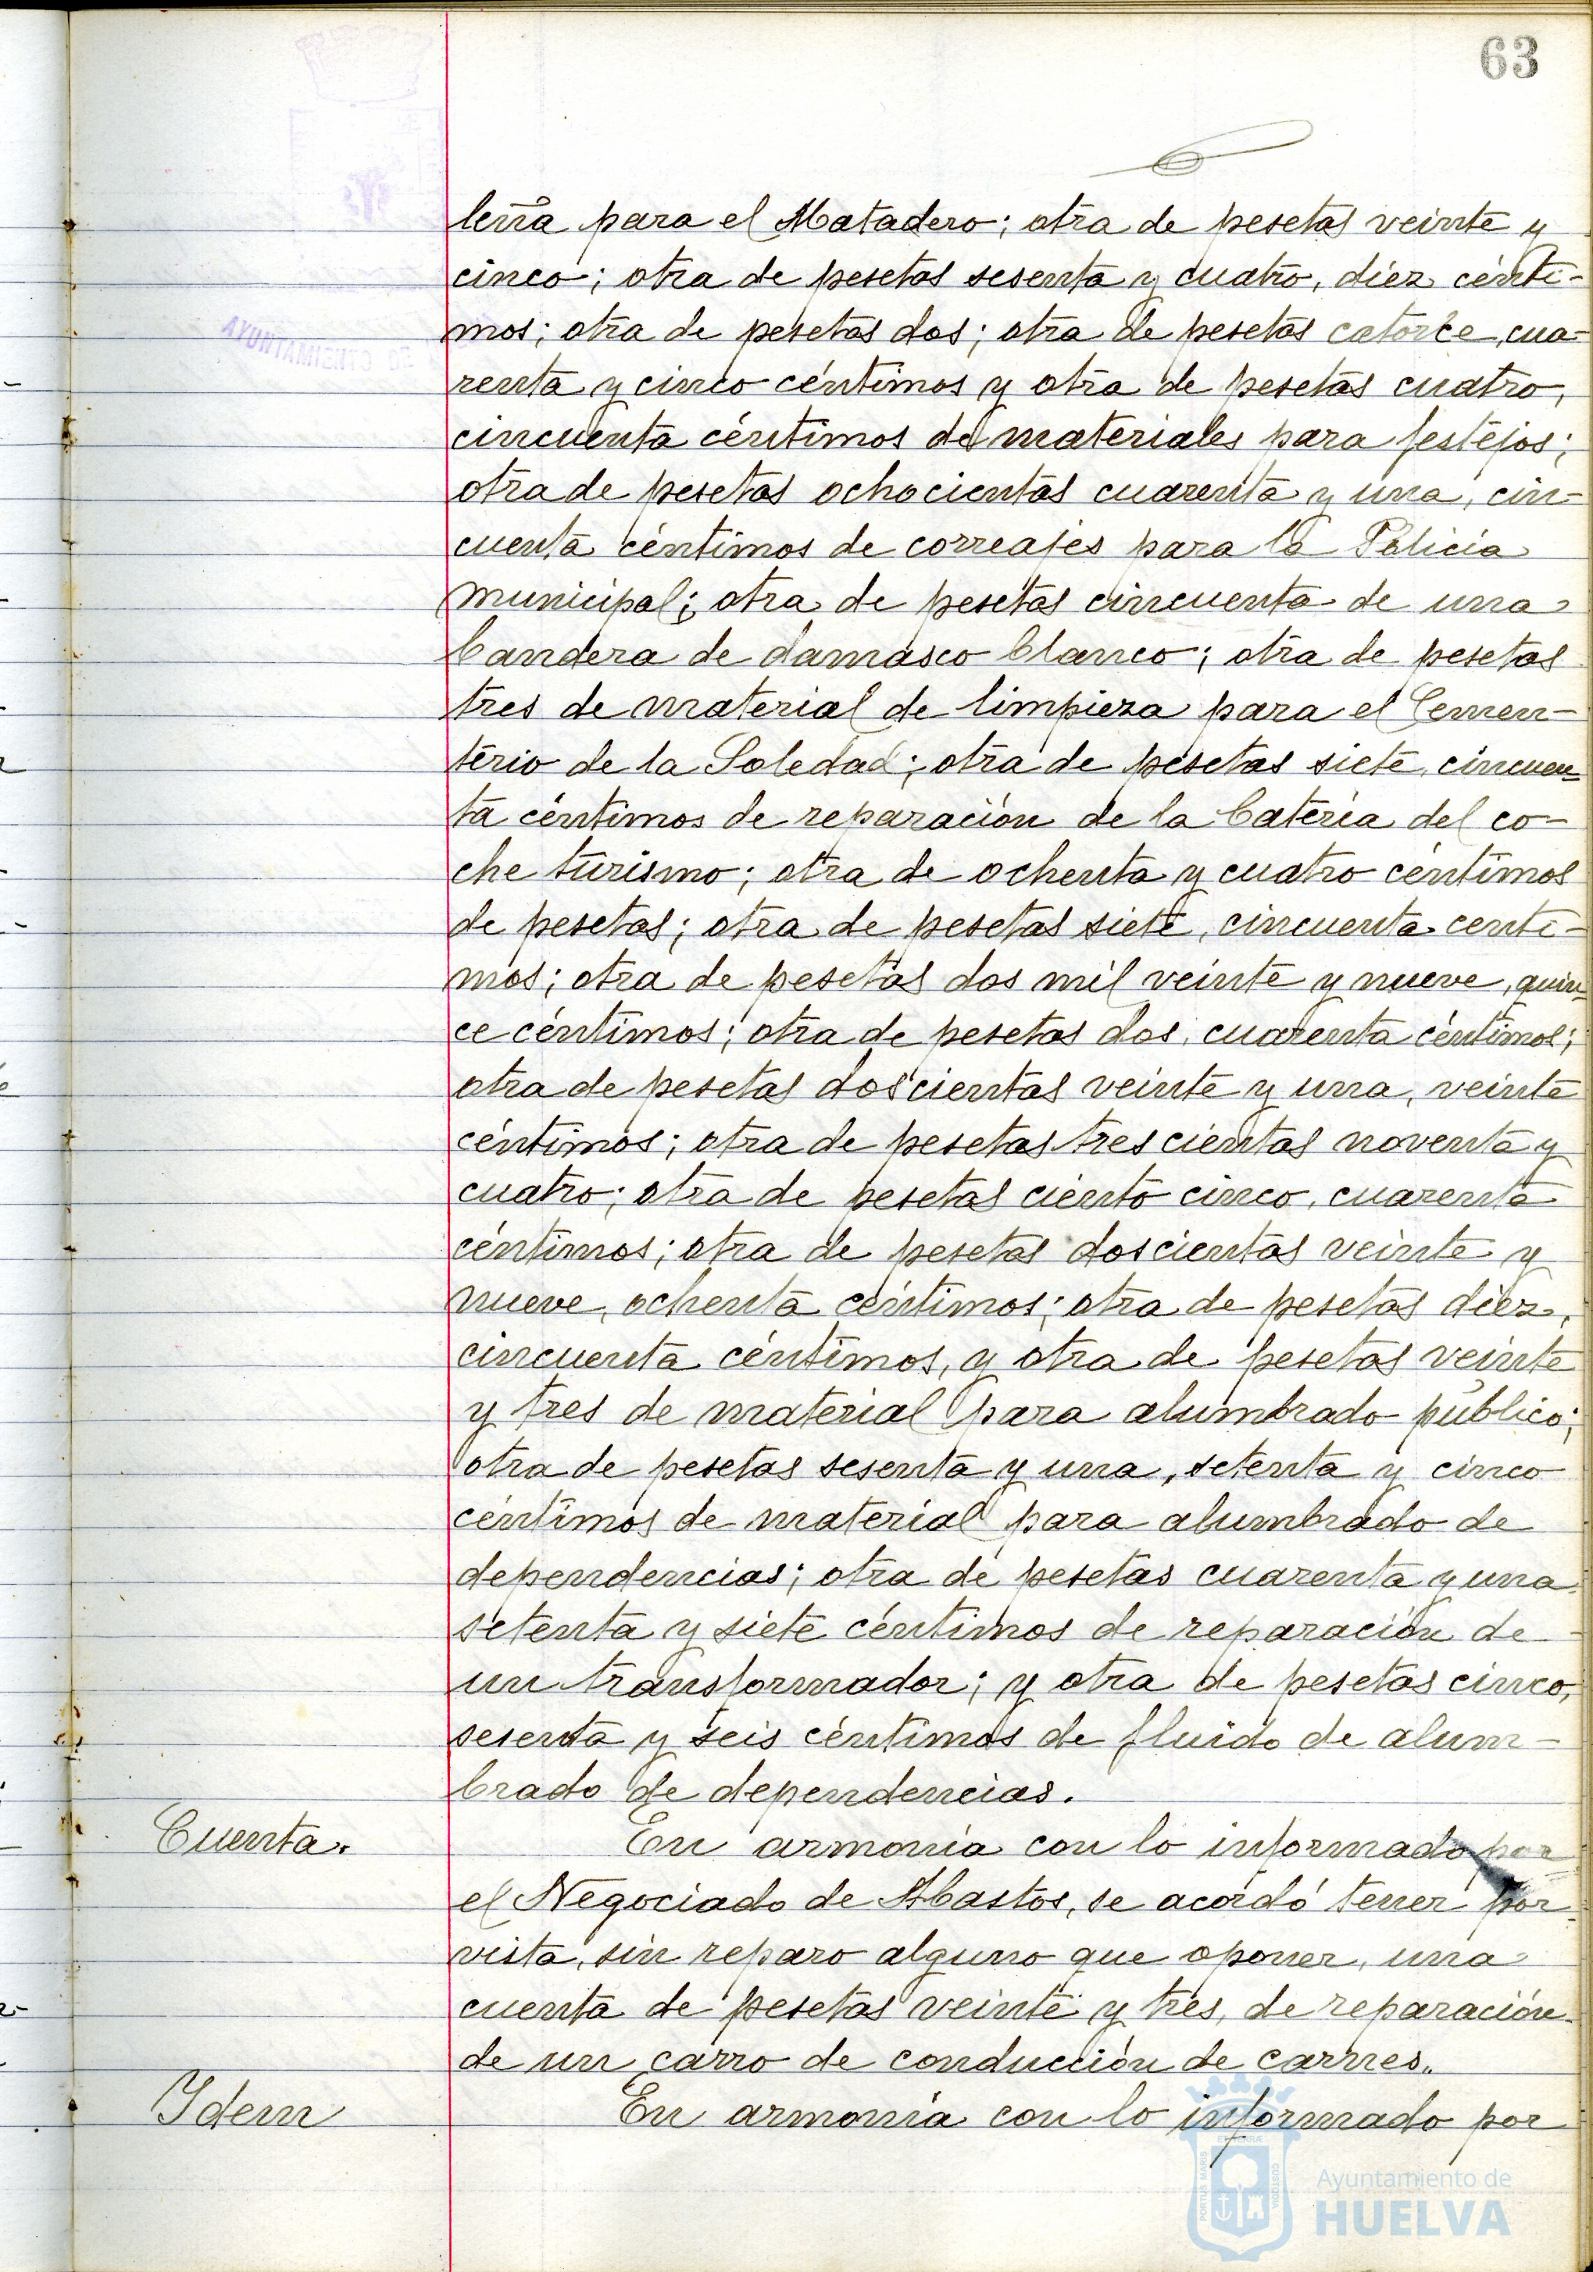 63
leña para el Matadero; otra de pesetas veinte y
cinco; otra de pesetas sesenta y cuatro, diez cénti-
mos; otra de pesetas dos; otra de pesetas catorce, cua-
renta y cinco céntimos y otra de pesetas cuatro,
cincuenta céntimos de materiales para festejos;
otra de pesetas ochocientas cuarenta y una, cin-
cuenta céntimos de correajes para la Policía
municipal; otra de pesetas cincuenta de una
bandera de damasco blanco; otra de pesetas
tres de material de limpieza para el Cemen-
terio de la Soledad; otra de pesetas siete, cincuen-
ta céntimos de reparación de la batería del co-
che turismo; otra de ochenta y cuatro céntimos
de pesetas; otra de pesetas siete, cincuenta cénti-
mos; otra de pesetas dos mil veinte y nueve, quin-
ce céntimos; otra de pesetas dos, cuarenta céntimos;
otra de pesetas doscientas veinte y una, veinte
céntimos; otra de pesetas trescientas noventa y
cuatro; otra de pesetas ciento cinco, cuarenta
céntimos; otra de pesetas doscientas veinte y
nueve, ochenta céntimos; otra de pesetas diez,
cincuenta céntimos, y otra de pesetas veinte
y tres de material para alumbrado público;
otra de pesetas sesenta y una, setenta y cinco
céntimos de material para alumbrado de
dependencias; otra de pesetas cuarenta y una
setenta y siete céntimos de reparación de
un transformador; y otra de pesetas cinco,
sesenta y seis céntimos de fluido de alum-
brado de dependencias.
Cuenta. En armonía con lo informado por
el Negociado de Abastos, se acordó tener por
vista, sin reparo alguno que oponer, una
cuenta de pesetas veinte y tres, de reparación
de un carro de conducción de carnes.
Idem En armonía con lo informado por
AYUNTAMIENTO DE
Ayuntamiento de
HUELVA
PORTUS MARIS
CUSTODIA